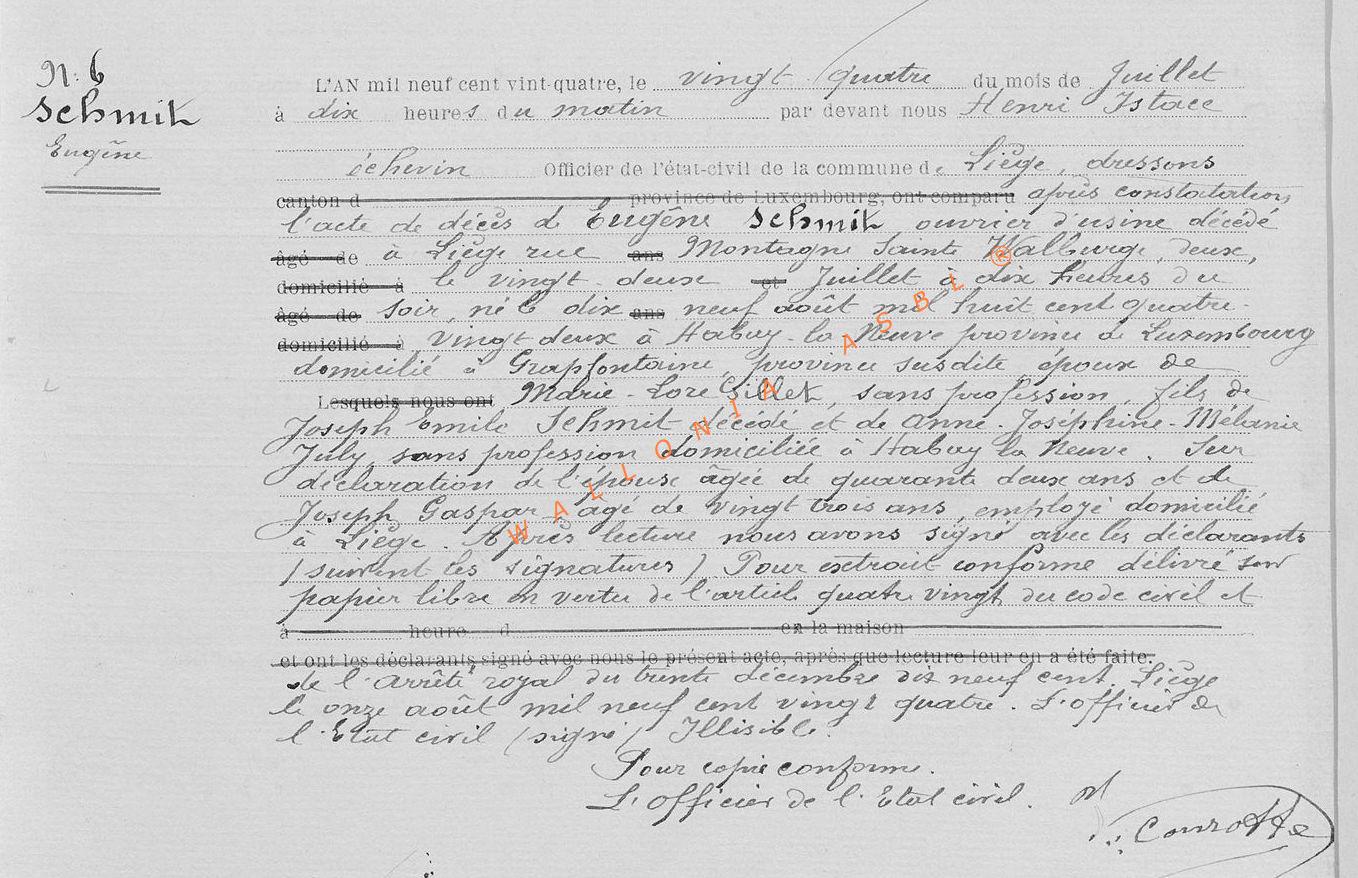 N: 6
Schmit
Eugêne
L'AN mil neuf cent vint-quatre, le vingt quatre du mois de Juillet
à dix heures du matin par devant nous Henri Istace
échevin Officier de l'état-civil de la commune de Liège, dressons
canton d province de Luxembourg, ont comparu après constatation,
l'acte de décès de Eugêne Schmit ouvrier d'usine décédé
âgé de à Liège rue ans Montagne Sainte Walburge, deux,
domicilié à le vingt-deux et Juillet à dix heures du
âgé de soir, né le dix ans neuf août mil huit cent quatre-
domicilié à vingt deux à Habay-la-Neuve province de Luxembourg
domicilié à Grapfontaine, province susdite, époux de
Lesquels nous ont Marie-Lore Gillet, sans profession fils de
Joseph Emile Schmit décédé et de Anne-Joséphine-Mélanie
July, sans profession domiciliée à Habay la Neuve. Sur
déclaration de l'épouse âgée de quarante deux ans et de
Joseph Gaspar âgé de vingt trois ans, employé domicilié
à Liège. Après lecture nous avons signé avec les déclarants
(suivent les signatures) Pour extrait conforme délivré sur
papier libre en vertu de l'article quatre vingt du code civil et
à heure d en la maison
et ont les déclarants signé avec nous le présent acte, après que lecture leur en a été faite.
de l'Arrêté royal du trente décembre dix neuf cent. Liège
le onze août mil neuf cent vingt quatre. L'officier de
l'Etat civil (signé) Illisible.
Pour copie conforme.
L'officier de l'Etat civil.
Conrotte
WALLONIA ASBL ®